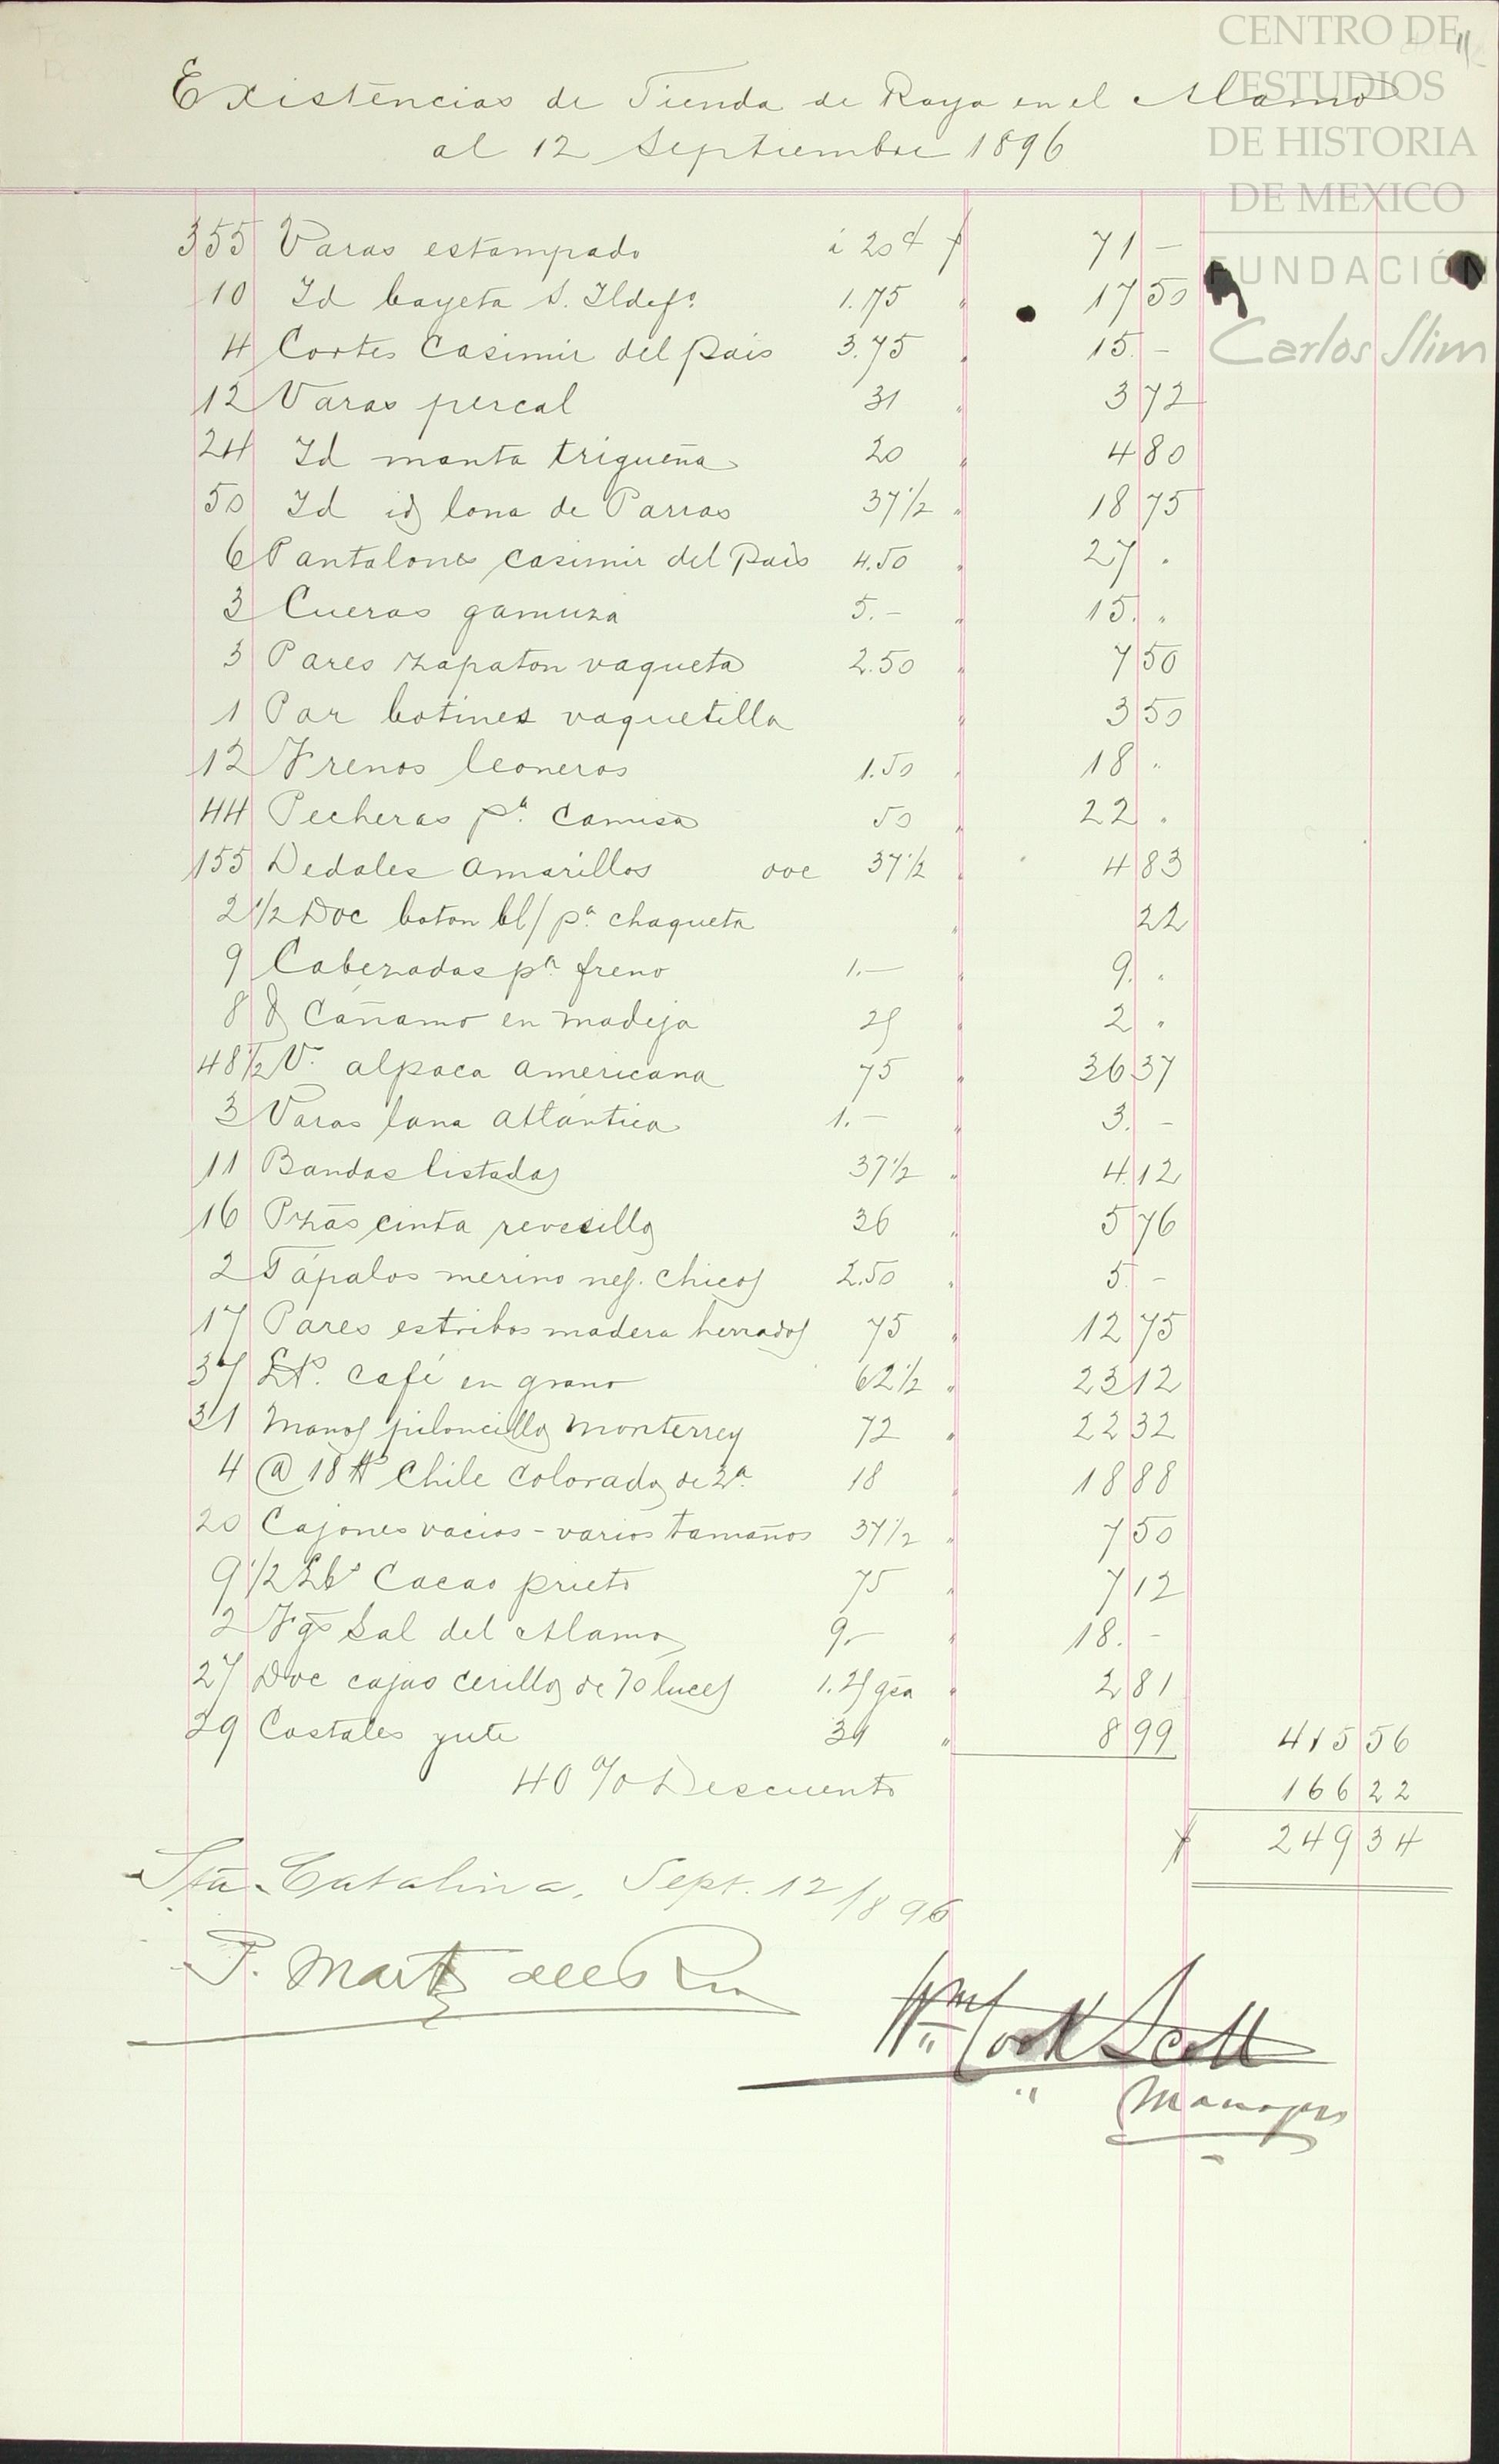 CENTRO DE
ESTUDIOS
DE HISTORIA
DE MEXICO
FUNDACIÓN
Carlos Slim
Existencias de Tienda de Raya en el Alamo
al 12 Septiembre 1896
355 Varas estampado á 20¢ $ 71 –
10 Id bayeta S. Ildefº 1.75 " 17 50
4 Cortes Casimir del pais 3.75 " 15. –
12 Varas percal 31 " 3 72
24 Id manta trigueña 20 " 4 80
50 Id id lona de Parras 37½ " 18 75
6 Pantalones casimir del pais 4.50 " 27 "
3 Cueras gamuza 5.– " 15. "
3 Pares zapaton vaqueta 2.50 " 7 50
1 Par botines vaquetilla " 3 50
12 Frenos leoneros 1.50 " 18 "
44 Pecheras pª camisa 50 " 22 "
155 Dedales amarillos doc 37½ " 4 83
2½ Doc boton bl/ pª chaqueta " 22
9 Cabezadas pª freno 1.– " 9. "
8 Cáñamo en madeja 25 " 2 "
48½ V. alpaca americana 75 " 36 37
3 Varas lana Atlántica 1.– " 3. –
11 Bandas listadas 37½ " 4 12
16 Pzas cinta revesillo 36 " 5 76
2 Tápalos merino neg. chicos 2.50 " 5 –
17 Pares estribos madera herrados 75 " 12 75
37 Lb. café en grano 62½ " 23 12
31 Manos piloncillo Monterrey 72 " 22 32
4 @ 18 lb Chile Colorado de 2ª 18 " 18 88
20 Cajones vacios - varios tamaños 37½ " 7 50
9½ Lbs Cacao prieto 75 " 7 12
2 Fgs Sal del Alamo 9.– " 18. –
27 Doc cajas cerillos de 70 luces 1.25 gsa " 2 81
29 Costales yute 31 " 8 99 415 56
40% Descuento 166 22
$ 249 34
Sta. Catalina, Sept. 12/896
P. Martz del Rio
Wm Cook Scott
Manager